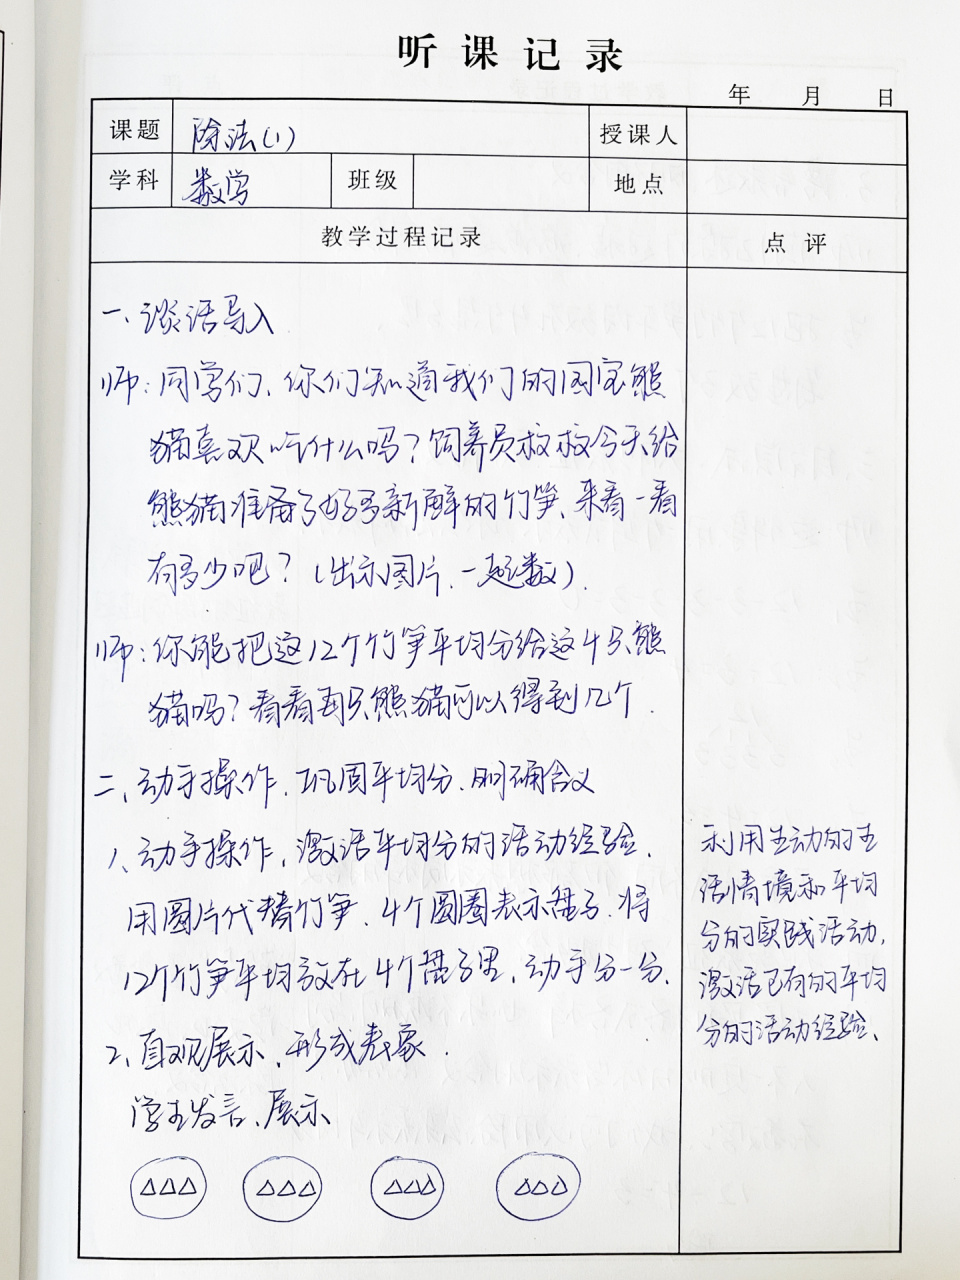 听课记录
年 月 日
课题 除法(1) 授课人
学科 数学 班级 地点
教学过程记录 点评
一、谈话导入
师：同学们，你们知道我们的国宝熊
猫喜欢吃什么吗？饲养员叔叔今天给
熊猫准备了好多新鲜的竹笋，来看一看
有多少吧？（出示图片，一起数）.
师：你能把这12个竹笋平均分给这4只熊
猫吗？看看每只熊猫可以得到几个.
二、动手操作，巩固平均分，明确含义
1、动手操作，激活平均分的活动经验.
用圆片代替竹笋，4个圆圈表示盘子，将
12个竹笋平均放在4个盘子里，动手分一分.
2、直观展示，形成表象.
学生发言、展示
利用生动的生
活情境和平均
分的实践活动，
激活已有的平均
分的活动经验、